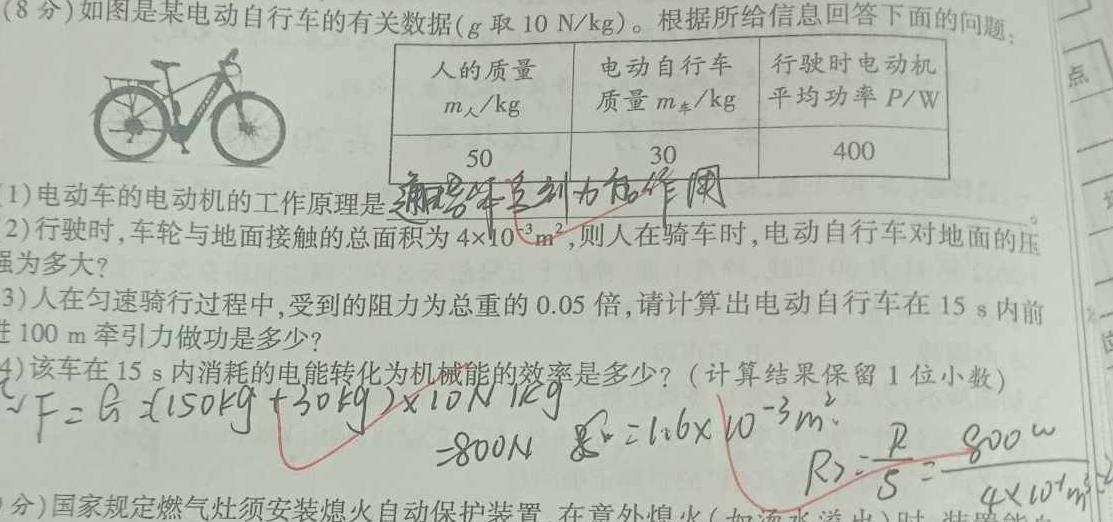 (8分)如图是某电动自行车的有关数据(g取10 N/kg)。根据所给信息回答下面的问题:
人的质量 m人/kg 电动自行车质量 m车/kg 行驶时电动机平均功率 P/W
50 30 400
(1)电动车的电动机的工作原理是通电导体受到力的作用。
2)行驶时,车轮与地面接触的总面积为4×10⁻³m²,则人在骑车时,电动自行车对地面的压
强为多大?
3)人在匀速骑行过程中,受到的阻力为总重的0.05倍,请计算出电动自行车在15 s内前
进100 m牵引力做功是多少?
4)该车在15 s内消耗的电能转化为机械能的效率是多少?(计算结果保留1位小数)
F=G=(150kg+30kg)×10N/kg
=800N =1.6×10⁻³m²
=800w
分)国家规定燃气灶须安装熄火自动保护装置,在意外熄火(如汤水溢出)时,装置能
点